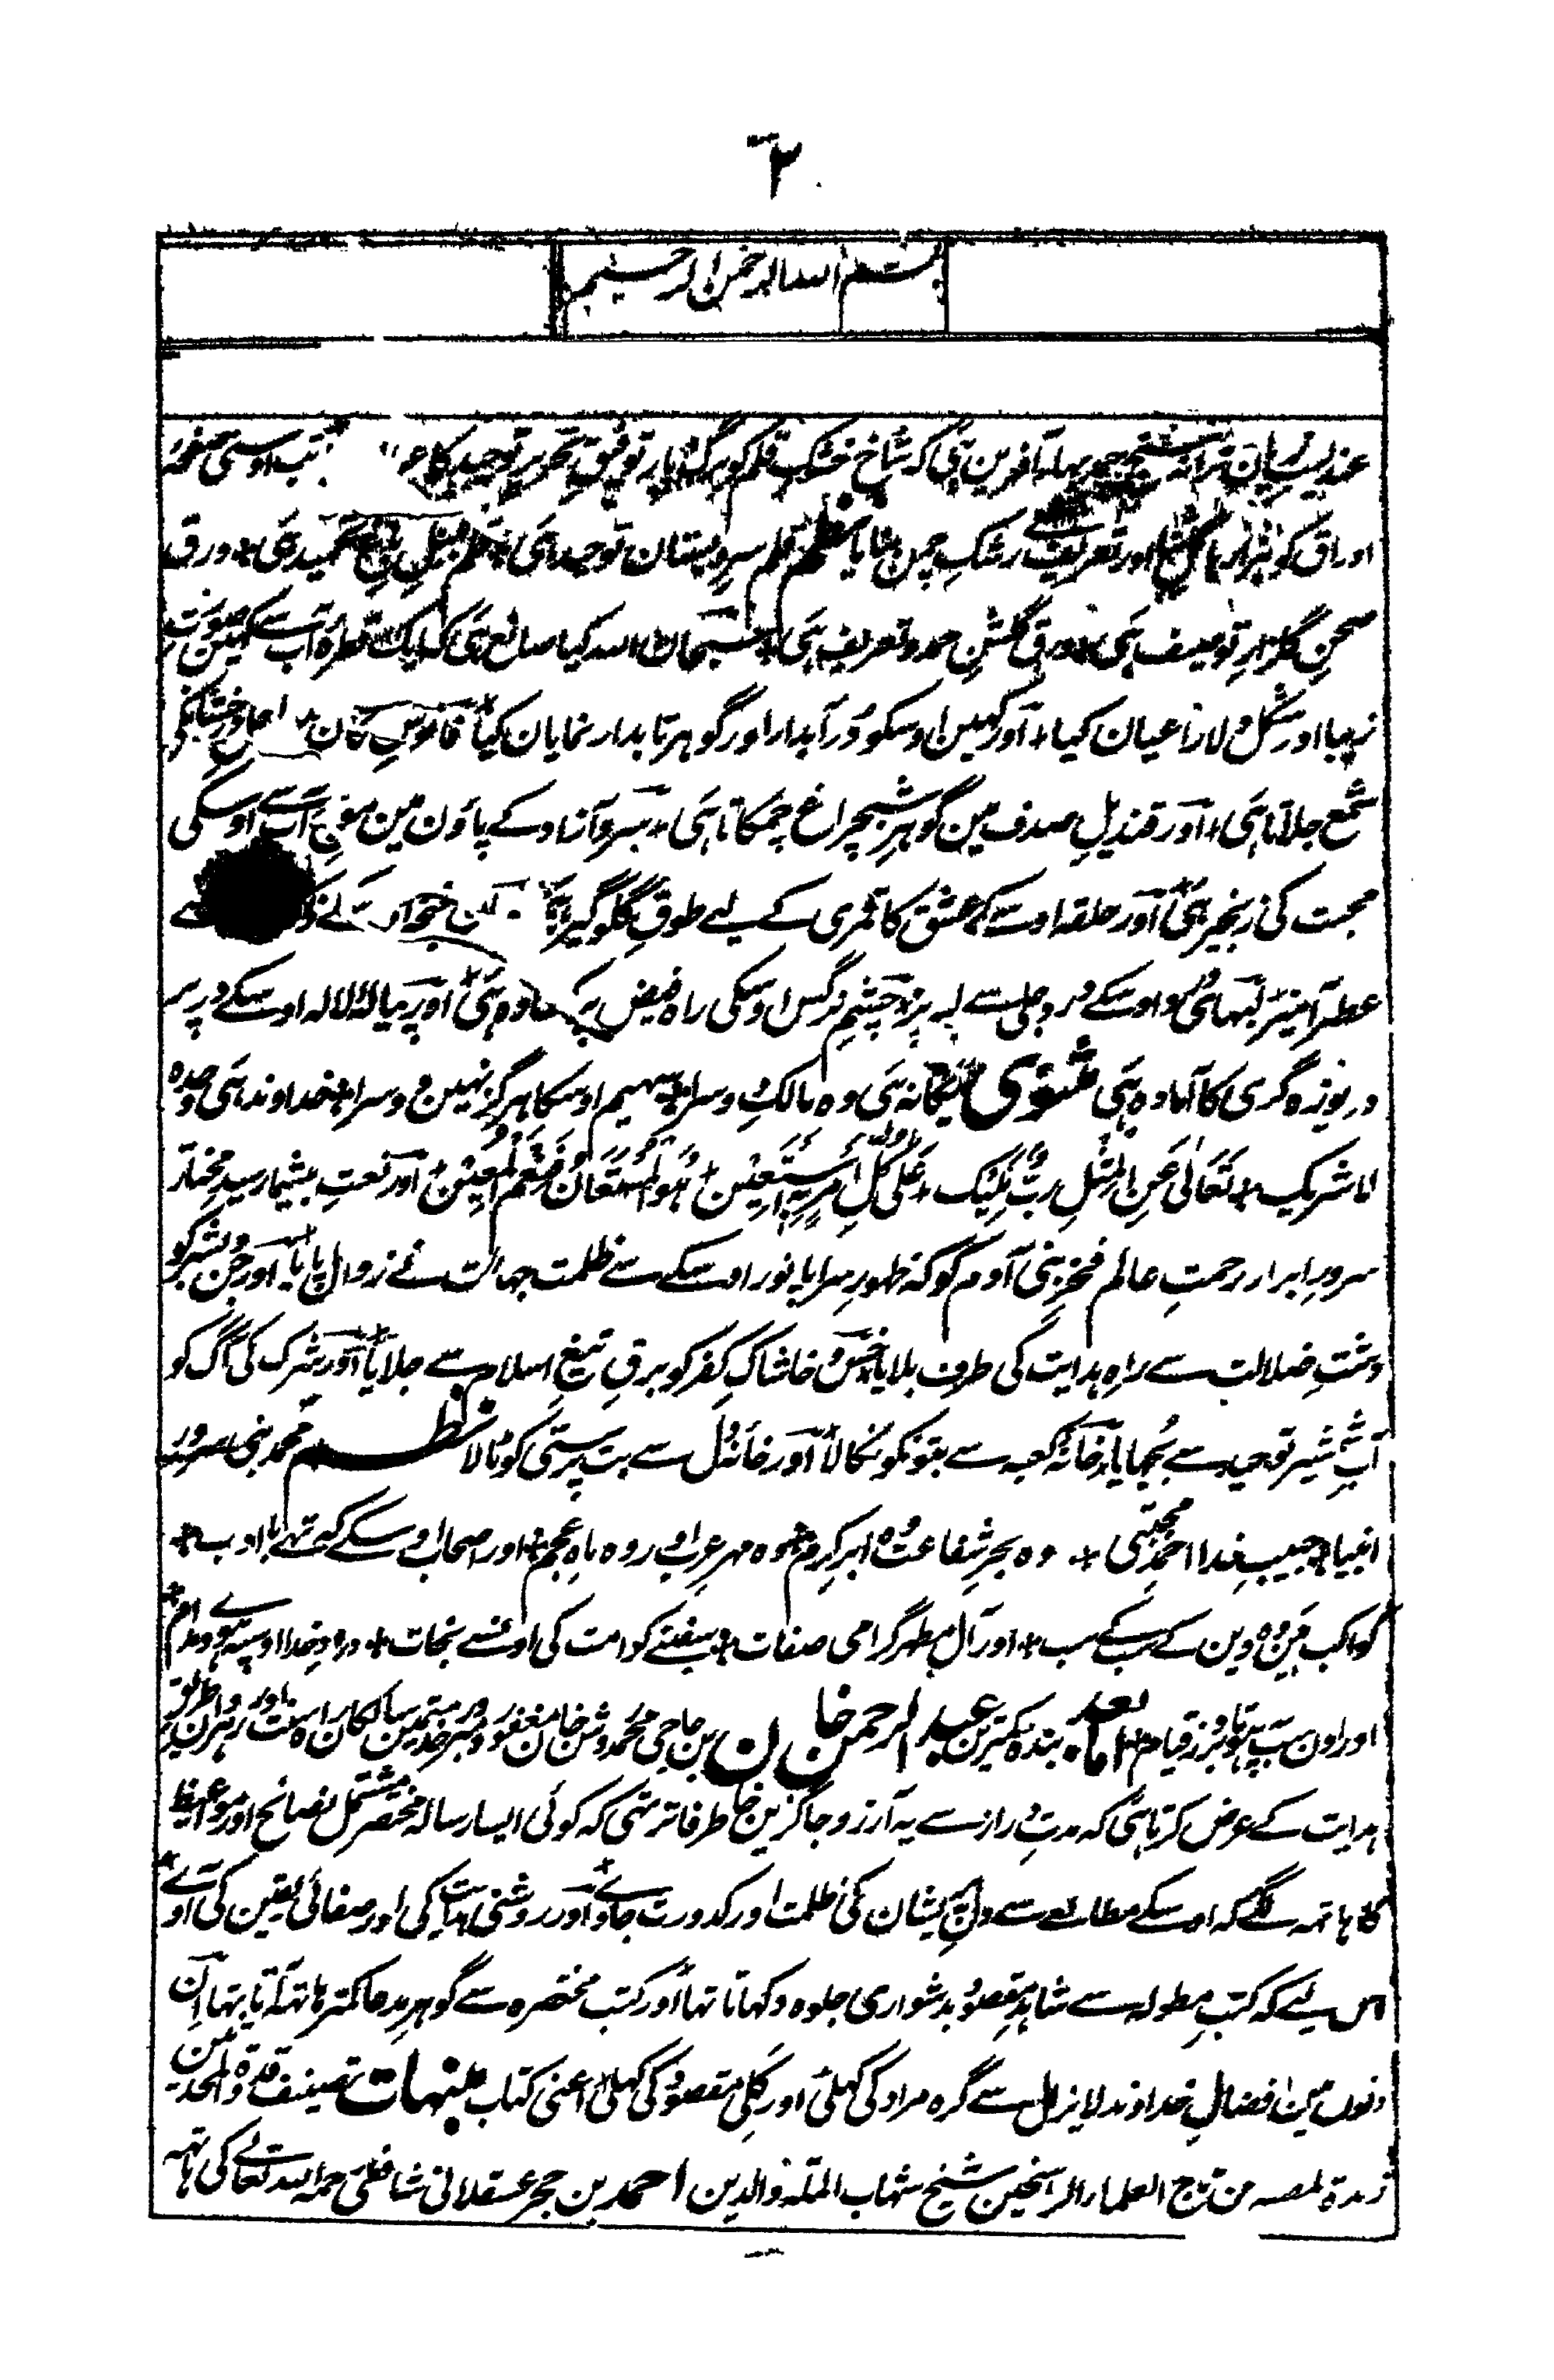 ٢
بسم الله الرحمن الرحيم
عندلیب زبان ترانہ سنج حمد بہار آفرین ہی کہ شاخ خشک قلم کو برگ و بار توفیق تحریر توحید کا تب اوسی صفحہ
اوراق کو اور تعریف سے رشک چمن بنایا نظم قلم سرو بستان توحید ہی * قلم بلبل باغ تحمید ہی * ورق
صحن گلزار توصیف ہی * ورق گلشن حمد و تعریف ہی * سبحان اللہ کیا صانع ہی کہ ایک قطرۂ آب سے کہین صورت
زیبا اور شکل دلارا عیان کیا * اور کہین اوسکو در آبدار اور گوہر تابدار نمایان کیا * فانوس کان
شمع جلاتا ہی * اور قندیل صدف مین گوہر شبچراغ چمکاتا ہی * سرو آزاد کے پاؤن مین موج آب سے اوسکی
محبت کی زنجیر ہی * اور حلقہ اوسکے عشق کا قمری کے لیے طوق گلوگیر ہی
عطر آمیز اوسکے چشم نرگس اوسکی راہ فیض پر ہی * اور پیالہ لالہ اوسکے در پر
دریوزہ گری کا آمادہ ہی مثنوی یگانہ ہی وہ مالک دوسرا * سہیم اوسکا ہرگز نہین دوسرا * خداوند ہی وحدہ
لا شریک * تَعَالٰی عَنِ المِثْلِ رَبٌّ مَلِیْک * عَلٰی کُلِّ اَمْرٍ بِہٖ اَسْتَعِیْنُ * ہُوَ المُسْتَعَانُ فَنِعْمَ المُعِیْنُ * اور نعت بیشمار سید مختار
سرور ابرار رحمت عالم فخر بنی آدم کو کہ ظہور سراپا نور اوسکے سے ظلمت جہالت نے زوال پایا * اور جن و بشر کو
دشت ضلالت سے راہ ہدایت کی طرف بلایا * خس و خاشاک کفر کو برق تیغ اسلام سے جلایا * اور شرک کی آگ کو
آب شمشیر توحید سے بجھایا * خانۂ کعبہ سے بتونکو نکالا * اور خانۂ دل سے بت پرستی کو ٹالا نظم محمد نبی سرور
انبیا * حبیب خدا احمد مجتبی * وہ بحر شفاعت وہ ابر کرم * وہ مہر عرب اور وہ ماہ عجم * اور اصحاب اوسکے کہ تھے با ادب *
کواکب ہین وہ دین کے سب کے سب * اور آل مطہر گرامی صفات * سفینے کو امت کی اونسے نجات * درود خدا اوسپہ ہووے مدام *
اور اون سب پہ تا روز قیام * اما بعد بندہ کمترین عبد الرحمن خان بن حاجی محمد روشن خان مغفور و مبرور خدمت مین سالکان راہ سنت اور رہروان طریق
ہدایت کے عرض کرتا ہی کہ مدت دراز سے یہ آرزو جاگزین خاطر فاتر تھی کہ کوئی ایسا رسالہ مختصر مشتمل نصائح اور مواعظ
کا ہاتھ لگے کہ اوسکے مطالعے سے دل پریشان کی ظلمت اور کدورت جاوے * اور روشنی ہدایت کی اور صفائی یقین کی آوے *
اس لیے کہ کتب مطولہ سے شاہد مقصود بدشواری جلوہ دکھاتا تھا * اور کتب مختصرہ سے گوہر مدعا کمتر ہاتھ آتا تھا * ان
دنون مین افضال خداوند لایزال سے گرہ مراد کی کھلی * اور کلی مقصود کی کھلی * اعنی کتاب منبہات تصنیف قدوۃ المحدثین
زبدۃ تاج العلماء الراسخین شیخ شہاب الملۃ والدین احمد بن حجر عسقلانی شافعی رحمہ اللہ تعالے کی ہاتھ